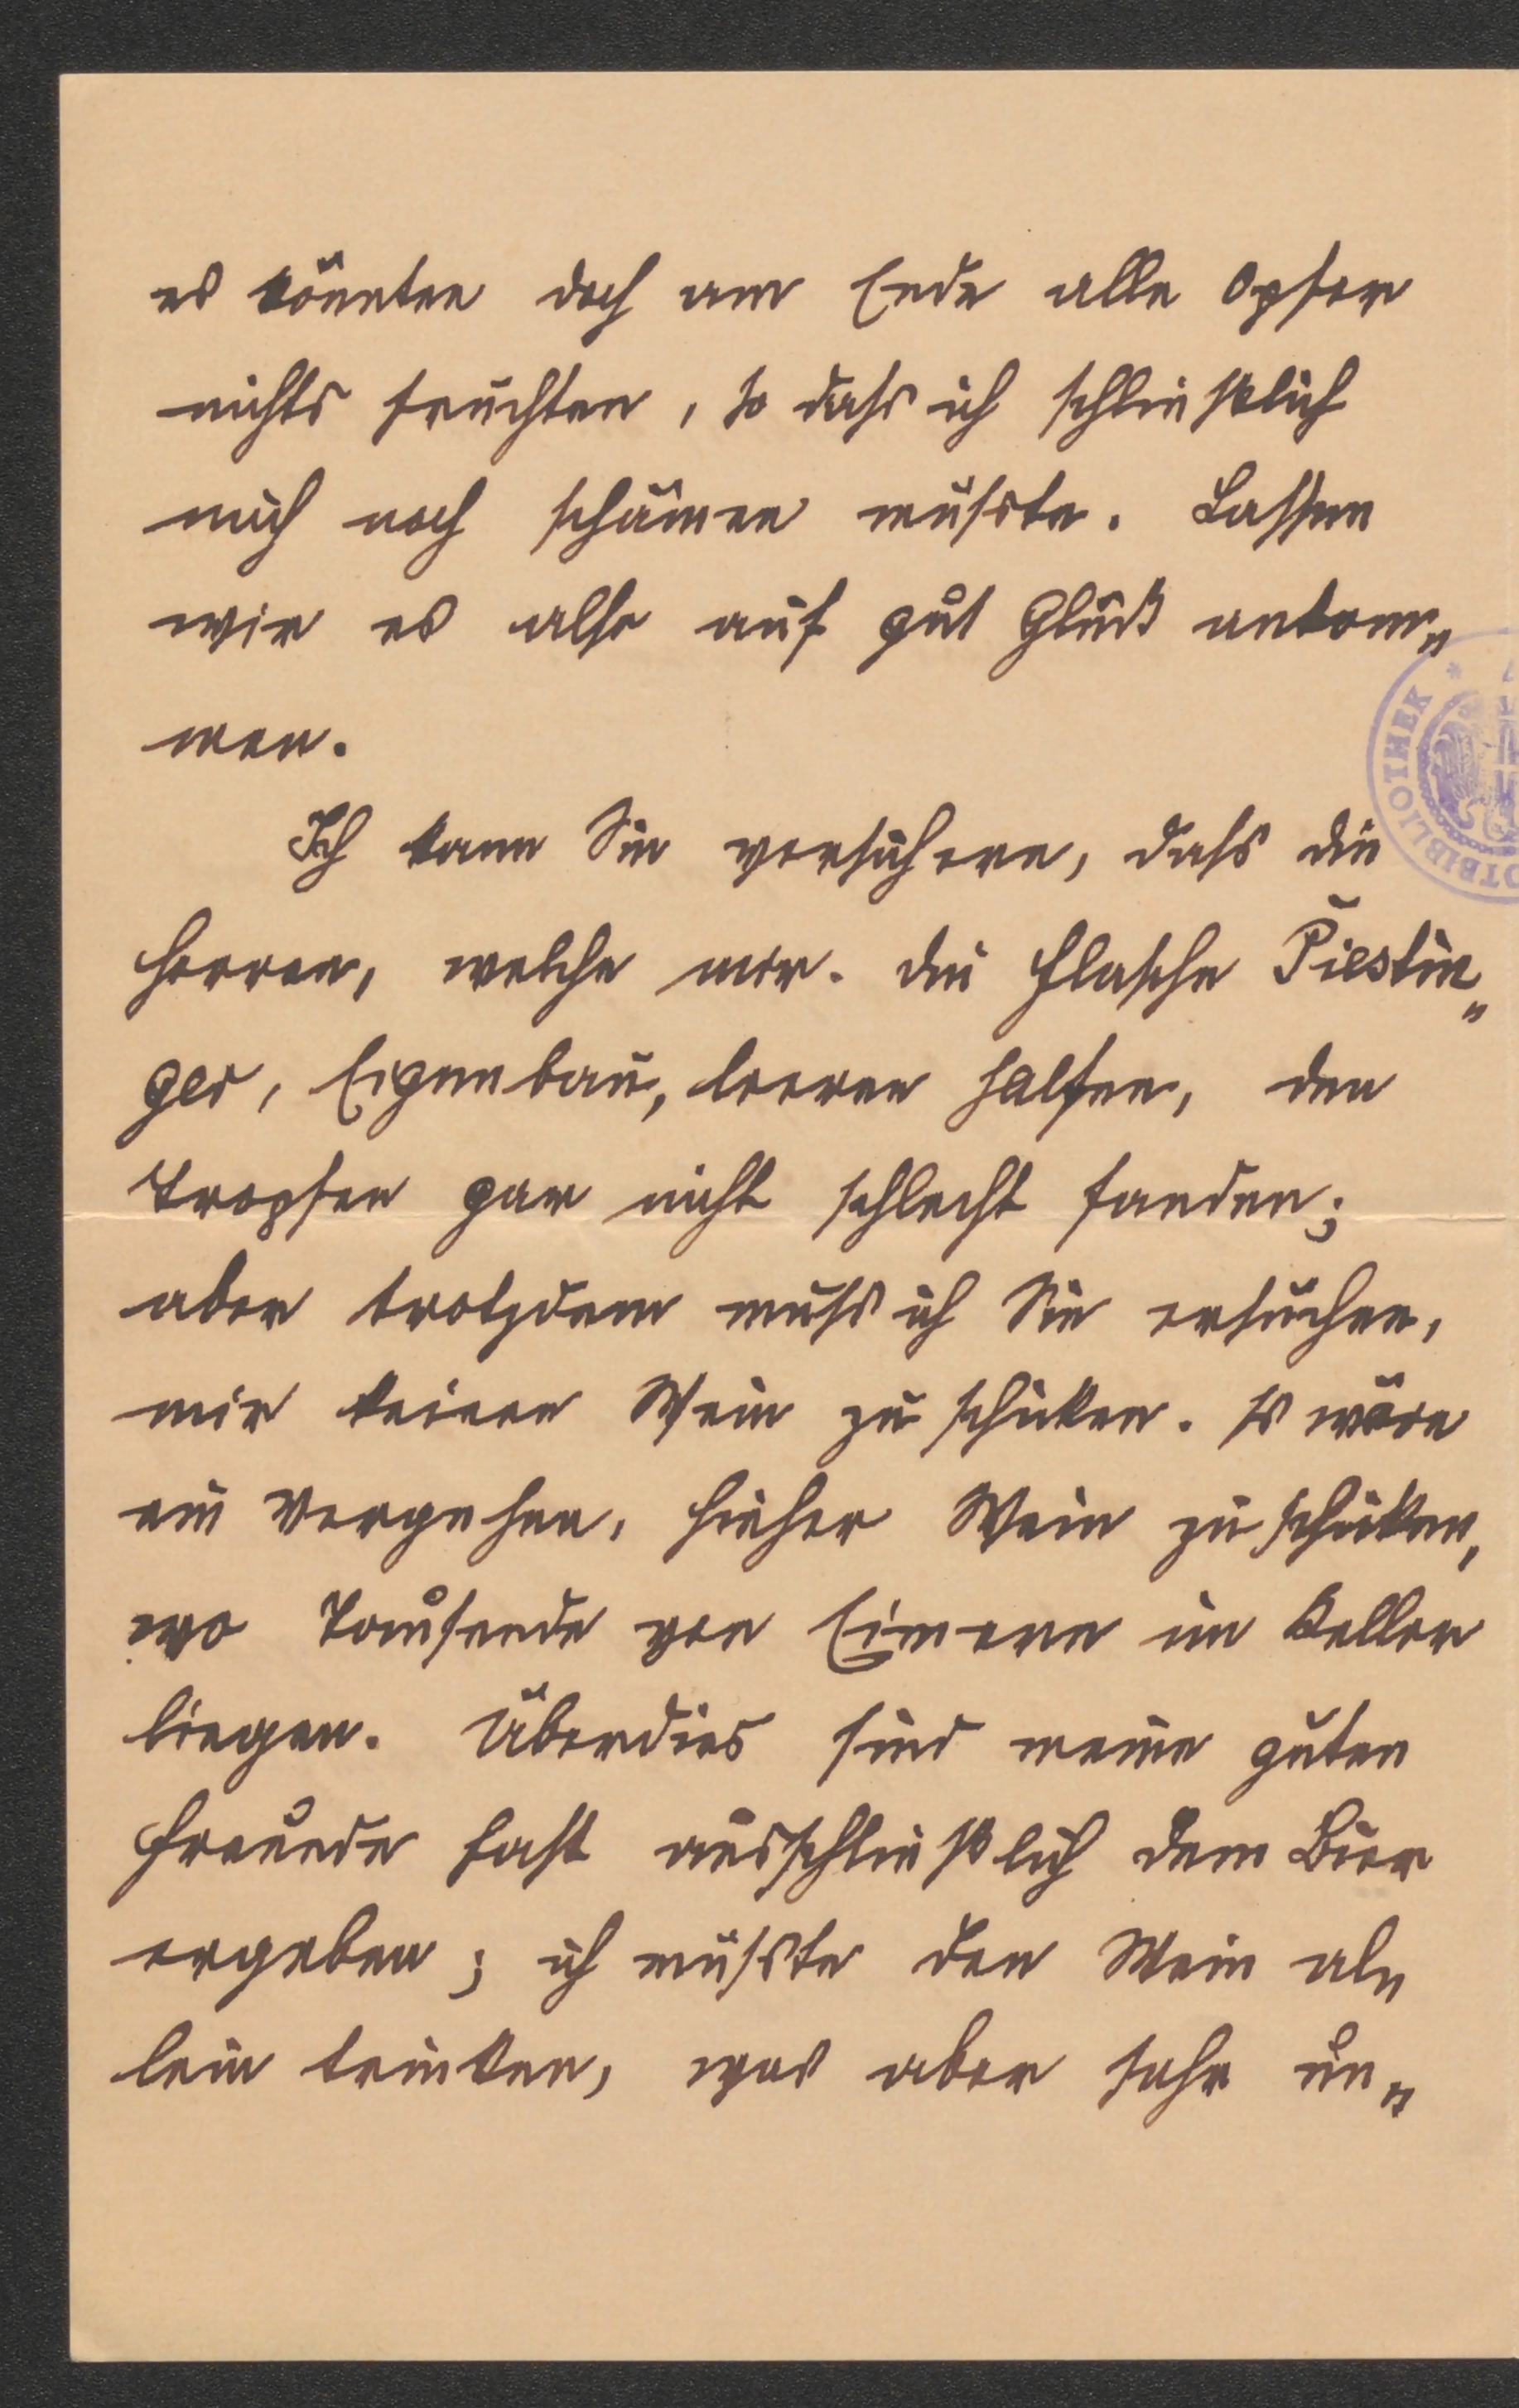 es könnten doch am Ende alle Opfer
nichts fruchten, so dass ich schließlich
mich noch schämen müsste. Lassen
wir es also auf gut Glück ankom„
men.
Ich kann Sie versichern, dass die
Herren, welche mir die Flasche Piestin„
ger, Eigenbau, leeren halfen, den
Tropfen gar nicht schlecht fanden;
aber trotzdem muss ich Sie ersuchen,
mir keinen Wein zu schicken. Es wäre
ein Vergehen, hieher Wein zu schicken,
wo Tausende von Eimern im Keller
liegen. Überdies sind meine guten
Freunde fast ausschließlich dem Bier
ergeben; ich müsste den Wein al„
lein trinken, was aber sehr un„